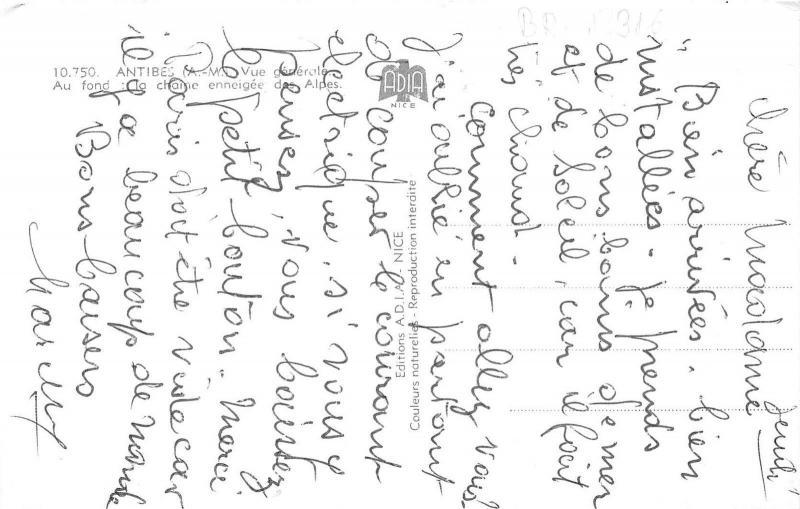 10.750. ANTIBES (A.-M.) Vue générale.
Au fond : la chaîne enneigée des Alpes.
ADIA
NICE
Editions A.D.I.A. - NICE
Couleurs naturelles - Reproduction interdite
Jeudi
Chère Madame
Bien arrivées, bien
installées. Je prends
de bons bains de mer
et de soleil, car il fait
très chaud.
Comment allez vous
J'ai oublié en partant
de couper le courant
électrique, si vous y
pensez, vous baissez
le petit bouton. Merci
Paris doit être vide car
il y a beaucoup de monde
Bons baisers